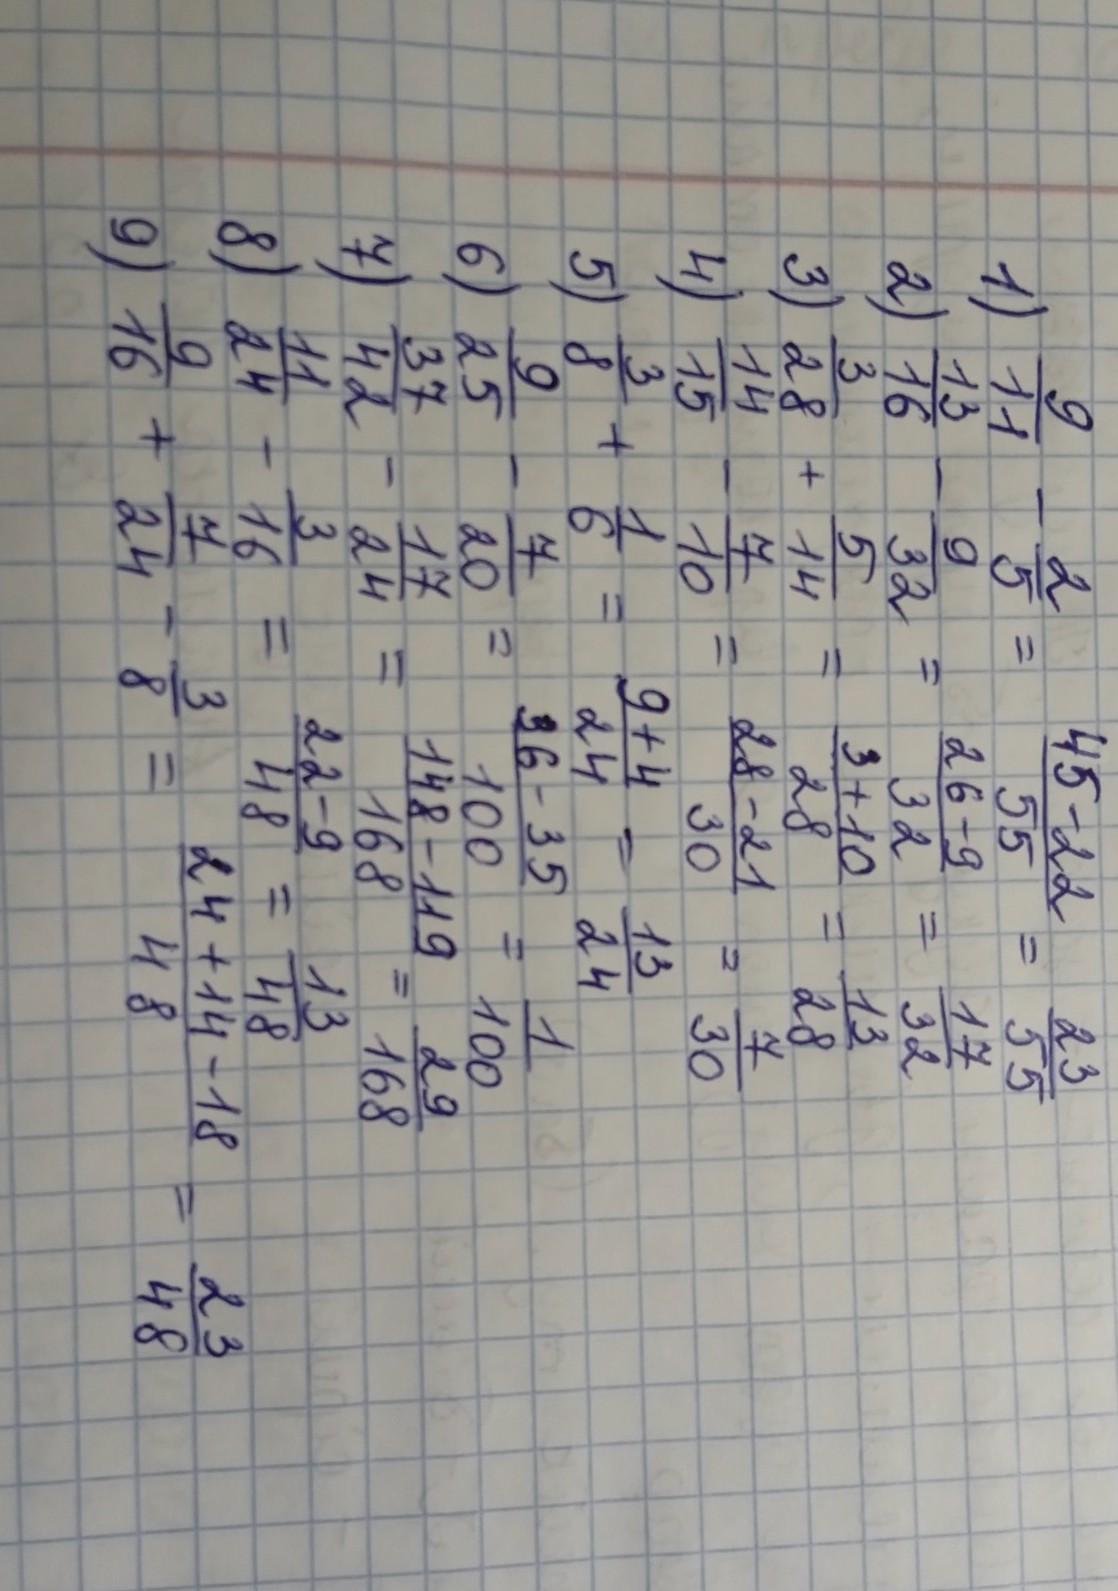 1) 9/11 - 2/5 = 45-22/55 = 23/55
2) 13/16 - 9/32 = 26-9/32 = 17/32
3) 3/28 + 5/14 = 3+10/28 = 13/28
4) 14/15 - 7/10 = 28-21/30 = 7/30
5) 3/8 + 1/6 = 9+4/24 = 13/24
6) 9/25 - 7/20 = 36-35/100 = 1/100
7) 37/42 - 17/24 = 148-119/168 = 29/168
8) 11/24 - 3/16 = 22-9/48 = 13/48
9) 9/16 + 7/24 - 3/8 = 24+14-18/48 = 23/48